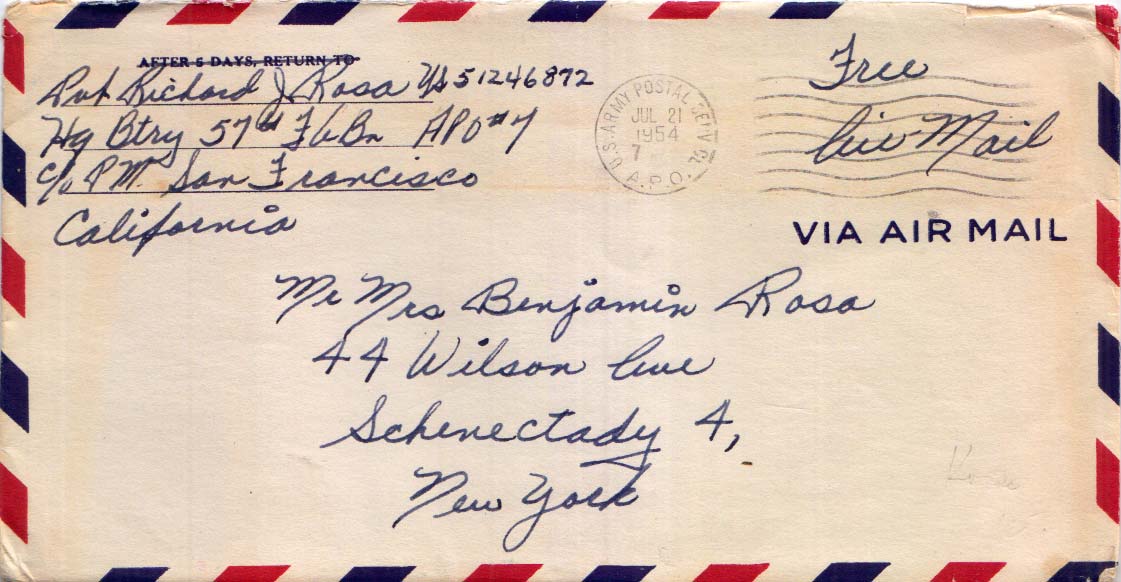 AFTER 5 DAYS, RETURN TO
Pvt Richard J. Rosa US 51246872
Hq Btry 57th FABn APO #7
c/o P.M. San Francisco
California
U.S. ARMY POSTAL SERVICE
JUL 21
1954
7
A.P.O.
Free
Air Mail
VIA AIR MAIL
Mr Mrs Benjamin Rosa
44 Wilson Ave
Schenectady 4,
New York